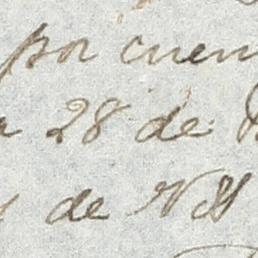 por cuen
28 de
de N S